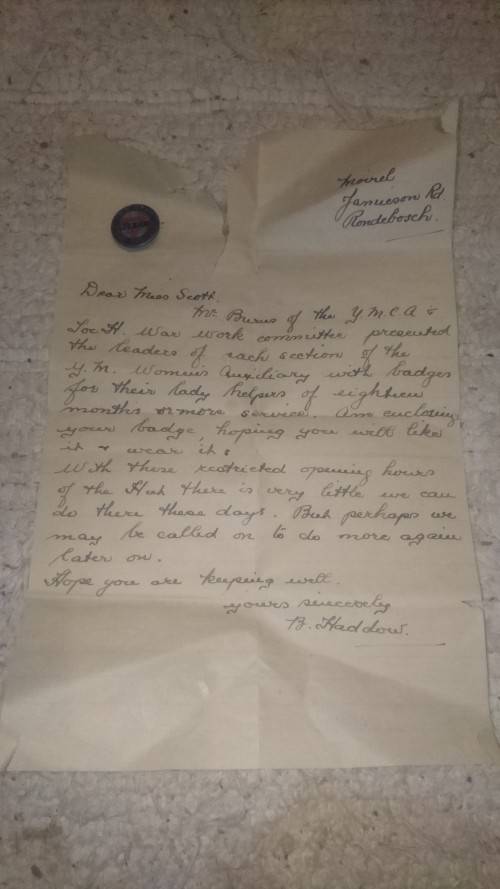 Jamieson Rd
Rondebosch.
Dear Miss Scott.
Mr Burns of the Y.M.C.A &
Toc H. War work committee presented
the leaders of each section of the
Y.M. Women's Auxiliary with badges
for their lady helpers of eighteen
months or more service. Am enclosing
your badge, hoping you will like
it & wear it.
With these restricted opening hours
of the Hut there is very little we can
do there these days. But perhaps we
may be called on to do more again
later on.
Hope you are keeping well.
yours sincerely
B. Haddow.